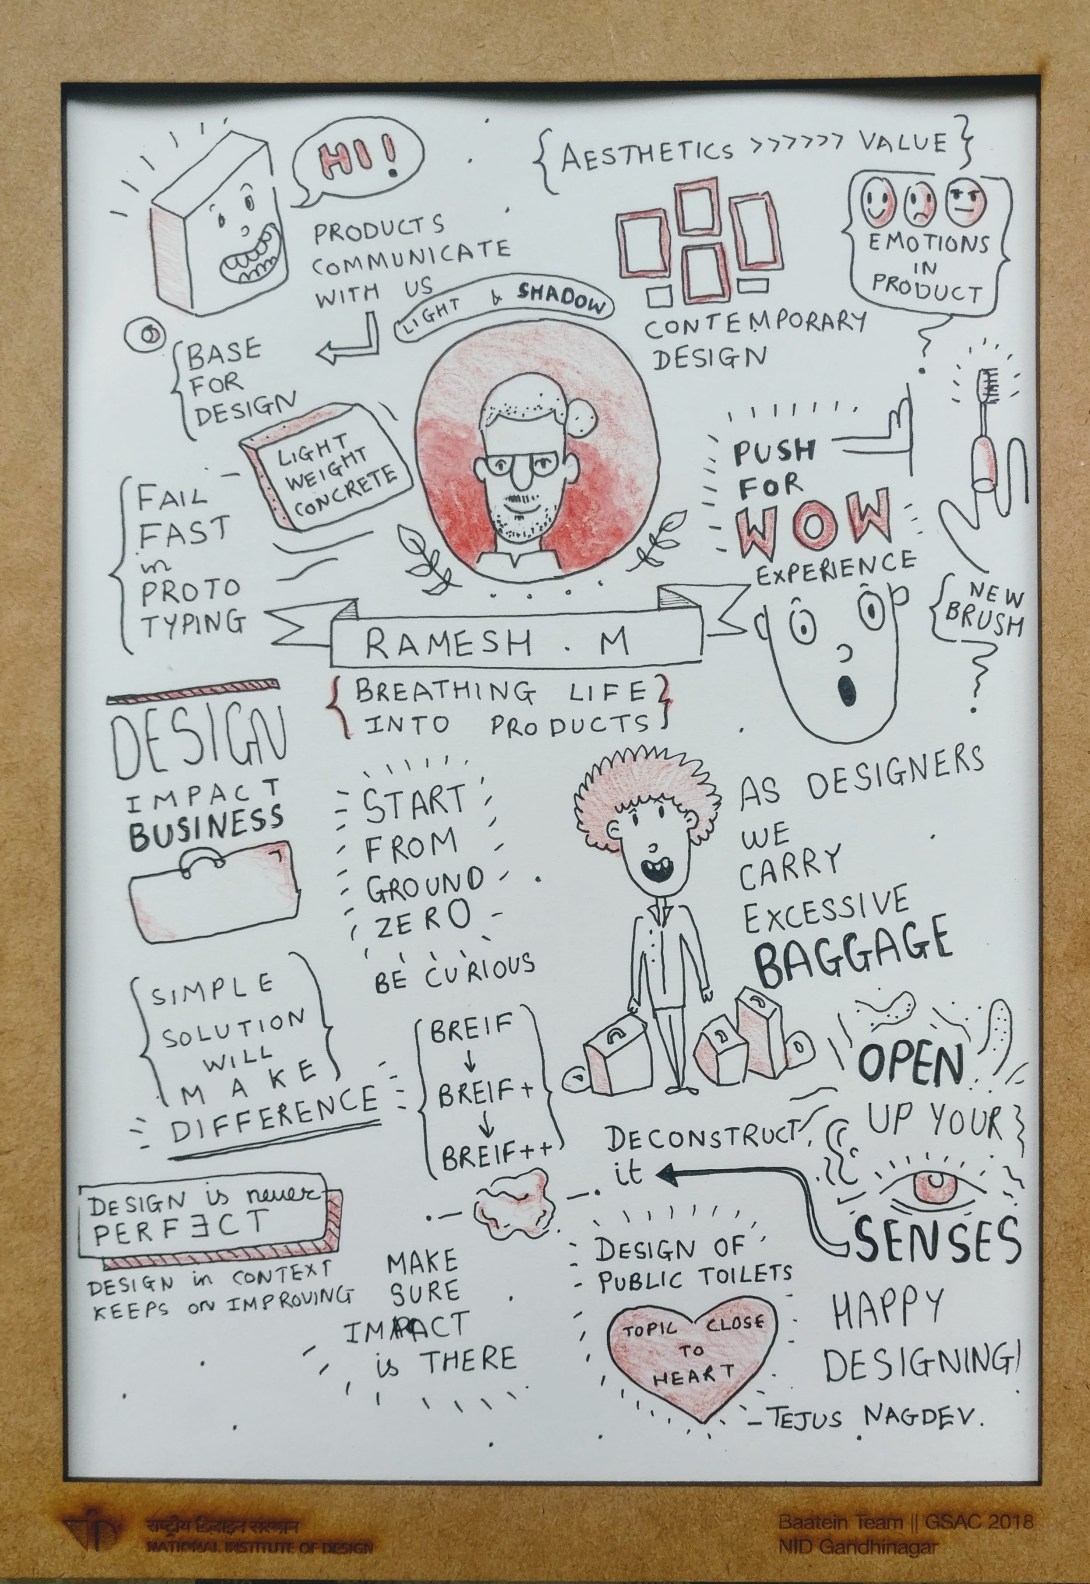 HI!
PRODUCTS
COMMUNICATE
WITH US
BASE
FOR
DESIGN
{AESTHETICS >>>>>> VALUE}
CONTEMPORARY
DESIGN
EMOTIONS
IN
PRODUCT
LIGHT & SHADOW
LIGHT
WEIGHT
CONCRETE
FAIL
FAST
in
PROTO
TYPING
PUSH
FOR
WOW
EXPERIENCE
NEW
BRUSH
RAMESH . M
{BREATHING LIFE
INTO PRODUCTS}
DESIGN
IMPACT
BUSINESS
START
FROM
GROUND
ZERO
BE CURIOUS
AS DESIGNERS
WE
CARRY
EXCESSIVE
BAGGAGE
SIMPLE
SOLUTION
WILL
MAKE
DIFFERENCE
BREIF
↓
BREIF+
↓
BREIF++
OPEN
UP YOUR
SENSES
DECONSTRUCT
it
DESIGN is never
PERFECT
DESIGN in CONTEXT
KEEPS ON IMPROVING
MAKE
SURE
IMPACT
is THERE
DESIGN OF
PUBLIC TOILETS
TOPIC CLOSE
TO
HEART
HAPPY
DESIGNING!
- TEJUS NAGDEV.
राष्ट्रीय डिजाइन संस्थान
NATIONAL INSTITUTE OF DESIGN
Baatein Team || GSAC 2018
NID Gandhinagar